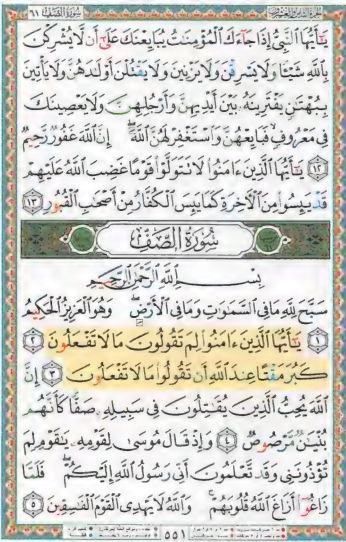 سُورَةُ الصَّفِّ ٦١
يَٰٓأَيُّهَا ٱلنَّبِيُّ إِذَا جَآءَكَ ٱلْمُؤْمِنَٰتُ يُبَايِعْنَكَ عَلَىٰٓ أَن لَّا يُشْرِكْنَ
بِٱللَّهِ شَيْـًٔا وَلَا يَسْرِقْنَ وَلَا يَزْنِينَ وَلَا يَقْتُلْنَ أَوْلَٰدَهُنَّ وَلَا يَأْتِينَ
بِبُهْتَٰنٍ يَفْتَرِينَهُۥ بَيْنَ أَيْدِيهِنَّ وَأَرْجُلِهِنَّ وَلَا يَعْصِينَكَ
فِى مَعْرُوفٍ فَبَايِعْهُنَّ وَٱسْتَغْفِرْ لَهُنَّ ٱللَّهَ ۖ إِنَّ ٱللَّهَ غَفُورٌ رَّحِيمٌ
١٢ يَٰٓأَيُّهَا ٱلَّذِينَ ءَامَنُوا۟ لَا تَتَوَلَّوْا۟ قَوْمًا غَضِبَ ٱللَّهُ عَلَيْهِمْ
قَدْ يَئِسُوا۟ مِنَ ٱلْءَاخِرَةِ كَمَا يَئِسَ ٱلْكُفَّارُ مِنْ أَصْحَٰبِ ٱلْقُبُورِ ١٣
سُورَةُ الصَّفِّ
بِسْمِ ٱللَّهِ ٱلرَّحْمَٰنِ ٱلرَّحِيمِ
سَبَّحَ لِلَّهِ مَا فِى ٱلسَّمَٰوَٰتِ وَمَا فِى ٱلْأَرْضِ ۖ وَهُوَ ٱلْعَزِيزُ ٱلْحَكِيمُ
١ يَٰٓأَيُّهَا ٱلَّذِينَ ءَامَنُوا۟ لِمَ تَقُولُونَ مَا لَا تَفْعَلُونَ ٢
كَبُرَ مَقْتًا عِندَ ٱللَّهِ أَن تَقُولُوا۟ مَا لَا تَفْعَلُونَ ٣ إِنَّ
ٱللَّهَ يُحِبُّ ٱلَّذِينَ يُقَٰتِلُونَ فِى سَبِيلِهِۦ صَفًّا كَأَنَّهُم
بُنْيَٰنٌ مَّرْصُوصٌ ٤ وَإِذْ قَالَ مُوسَىٰ لِقَوْمِهِۦ يَٰقَوْمِ لِمَ
تُؤْذُونَنِى وَقَد تَّعْلَمُونَ أَنِّى رَسُولُ ٱللَّهِ إِلَيْكُمْ ۖ فَلَمَّا
زَاغُوٓا۟ أَزَاغَ ٱللَّهُ قُلُوبَهُمْ ۚ وَٱللَّهُ لَا يَهْدِى ٱلْقَوْمَ ٱلْفَٰسِقِينَ ٥
٥٥١